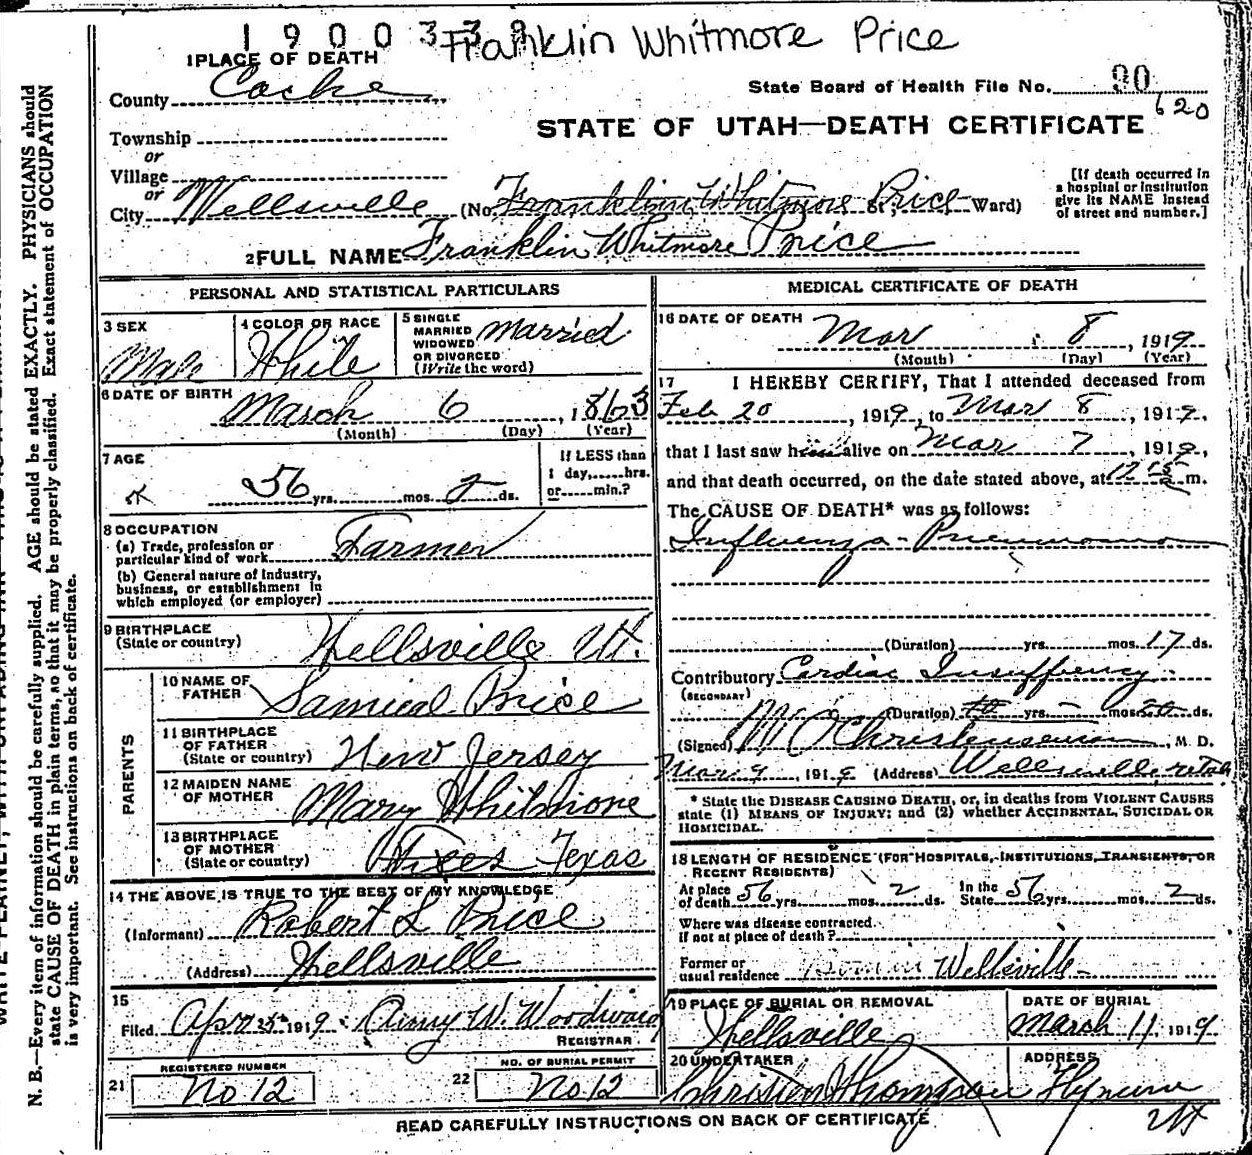 1900339
Franklin Whitmore Price
1 PLACE OF DEATH
County Cache
State Board of Health File No. 90
620
STATE OF UTAH—DEATH CERTIFICATE
Township
or
Village
or
City Wellsville (No. Franklin Whitmore Price St.; Ward)
[If death occurred in a hospital or institution give its NAME instead of street and number.]
2 FULL NAME Franklin Whitmore Price
PERSONAL AND STATISTICAL PARTICULARS
3 SEX Male
4 COLOR OR RACE White
5 SINGLE MARRIED WIDOWED OR DIVORCED (Write the word) Married
6 DATE OF BIRTH March 6, 1863
(Month) (Day) (Year)
7 AGE 56 yrs. mos. 2 ds.
If LESS than 1 day, hrs. or min.?
8 OCCUPATION
(a) Trade, profession or particular kind of work Farmer
(b) General nature of industry, business, or establishment in which employed (or employer)
9 BIRTHPLACE (State or country) Wellsville Ut.
PARENTS
10 NAME OF FATHER Samuel Price
11 BIRTHPLACE OF FATHER (State or country) New Jersey
12 MAIDEN NAME OF MOTHER Mary Whitmore
13 BIRTHPLACE OF MOTHER (State or country) Texas
14 THE ABOVE IS TRUE TO THE BEST OF MY KNOWLEDGE
(Informant) Robert L Price
(Address) Wellsville
15
Filed Apr 1919 Amy W. Woodward
REGISTRAR
REGISTERED NUMBER
21 No 12
NO. OF BURIAL PERMIT
22 No. 12
MEDICAL CERTIFICATE OF DEATH
16 DATE OF DEATH Mar 8, 1919
(Month) (Day) (Year)
17 I HEREBY CERTIFY, That I attended deceased from
Feb 20, 1919, to Mar 8, 1919,
that I last saw h alive on Mar 7, 1919,
and that death occurred, on the date stated above, at m.
The CAUSE OF DEATH* was as follows:
Influenza-Pneumonia
(Duration) yrs. mos. 17 ds.
Contributory Cardiac Insuffiency
(SECONDARY)
(Duration) yrs. mos. ds.
(Signed) Christensen, M. D.
Mar 9, 1919 (Address) Wellsville, Utah
* State the DISEASE CAUSING DEATH, or, in deaths from VIOLENT CAUSES
state (1) MEANS OF INJURY; and (2) whether ACCIDENTAL, SUICIDAL OR
HOMICIDAL.
18 LENGTH OF RESIDENCE (FOR HOSPITALS, INSTITUTIONS, TRANSIENTS, OR
RECENT RESIDENTS)
At place of death 56 yrs. mos. 2 ds. In the State 56 yrs. mos. 2 ds.
Where was disease contracted
if not at place of death?
Former or usual residence Wellsville
19 PLACE OF BURIAL OR REMOVAL Wellsville
DATE OF BURIAL March 11, 1919
20 UNDERTAKER Christen Thompson
ADDRESS Hyrum Ut
READ CAREFULLY INSTRUCTIONS ON BACK OF CERTIFICATE
N. B.—Every item of information should be carefully supplied. AGE should be stated EXACTLY. PHYSICIANS should
state CAUSE OF DEATH in plain terms, so that it may be properly classified. Exact statement of OCCUPATION
is very important. See instructions on back of certificate.